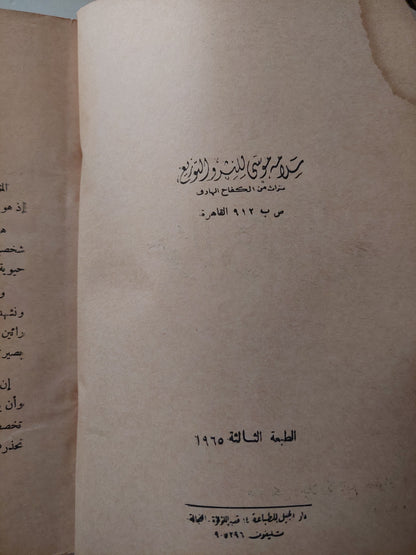 سلامه موسى للنشر والتوزيع
سنوات من الكفاح الهادف
ص ب ٩١٢ القاهرة
الطبعة الثالثة ١٩٦٥
دار الجيل للطباعة ١٤ قصر اللؤلؤة الفجالة
تليفون ٩٠٥٢٩٦
إذ هو
شخصي
حيوية
ونشهد
رائين
بصير
إن
وأن
تخصص
تحذر